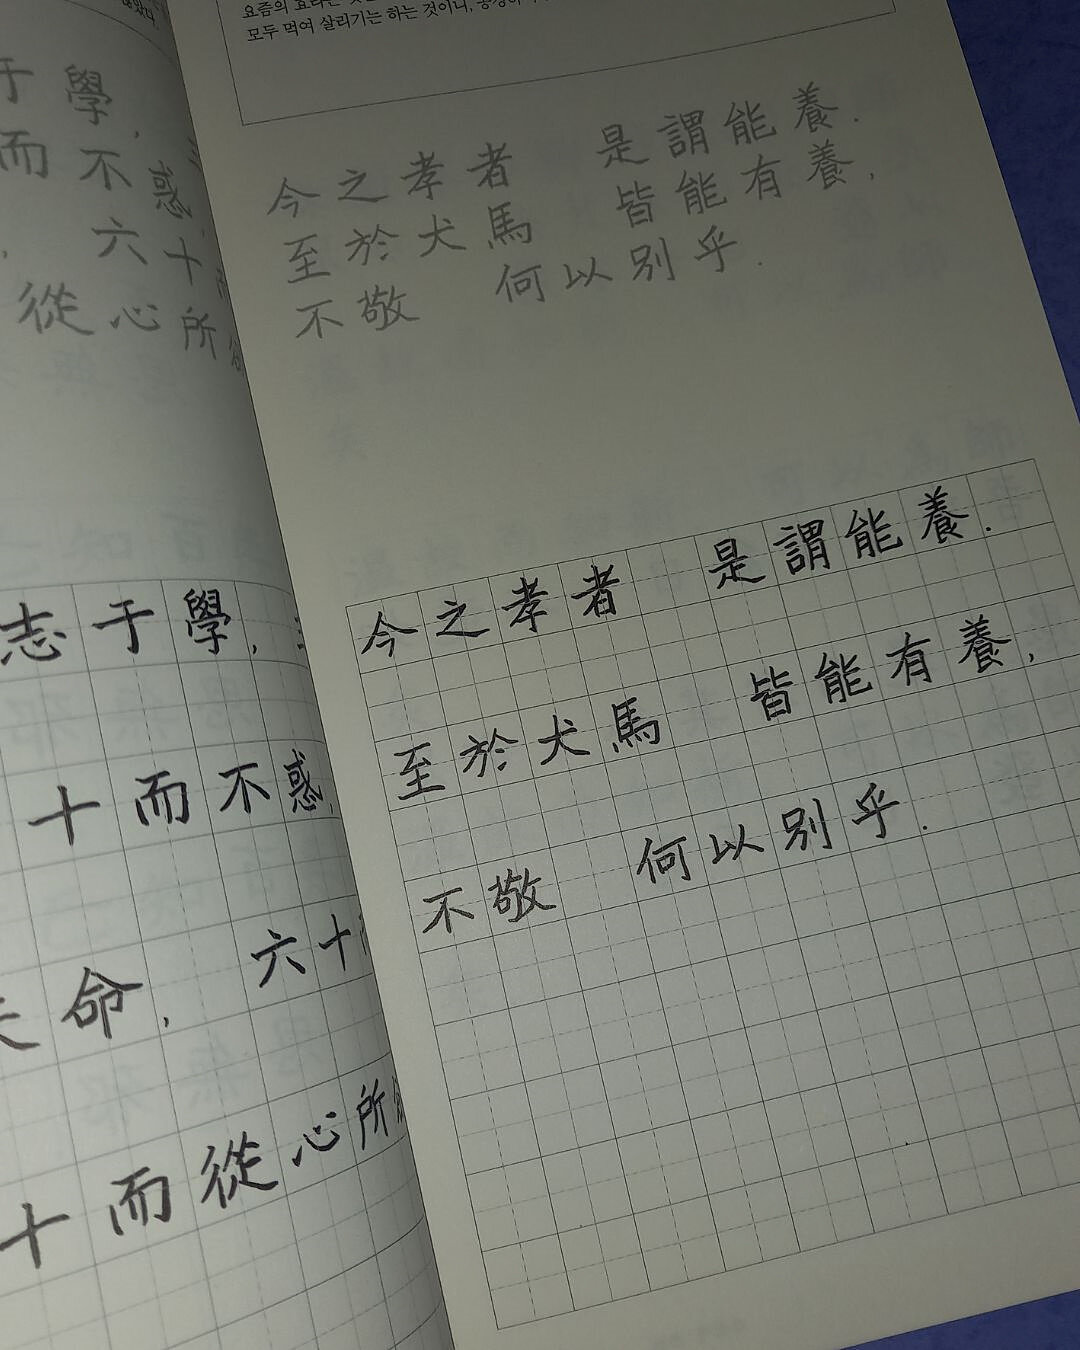 于學,
而不惑,
六十
從心所
志于學,
十而不惑,
命, 六十
十而從心所
요즘의 효라는
모두 먹여 살리기는 하는 것이니,
今之孝者 是謂能養.
至於犬馬 皆能有養,
不敬 何以別乎.
今之孝者 是謂能養.
至於犬馬 皆能有養,
不敬 何以別乎.